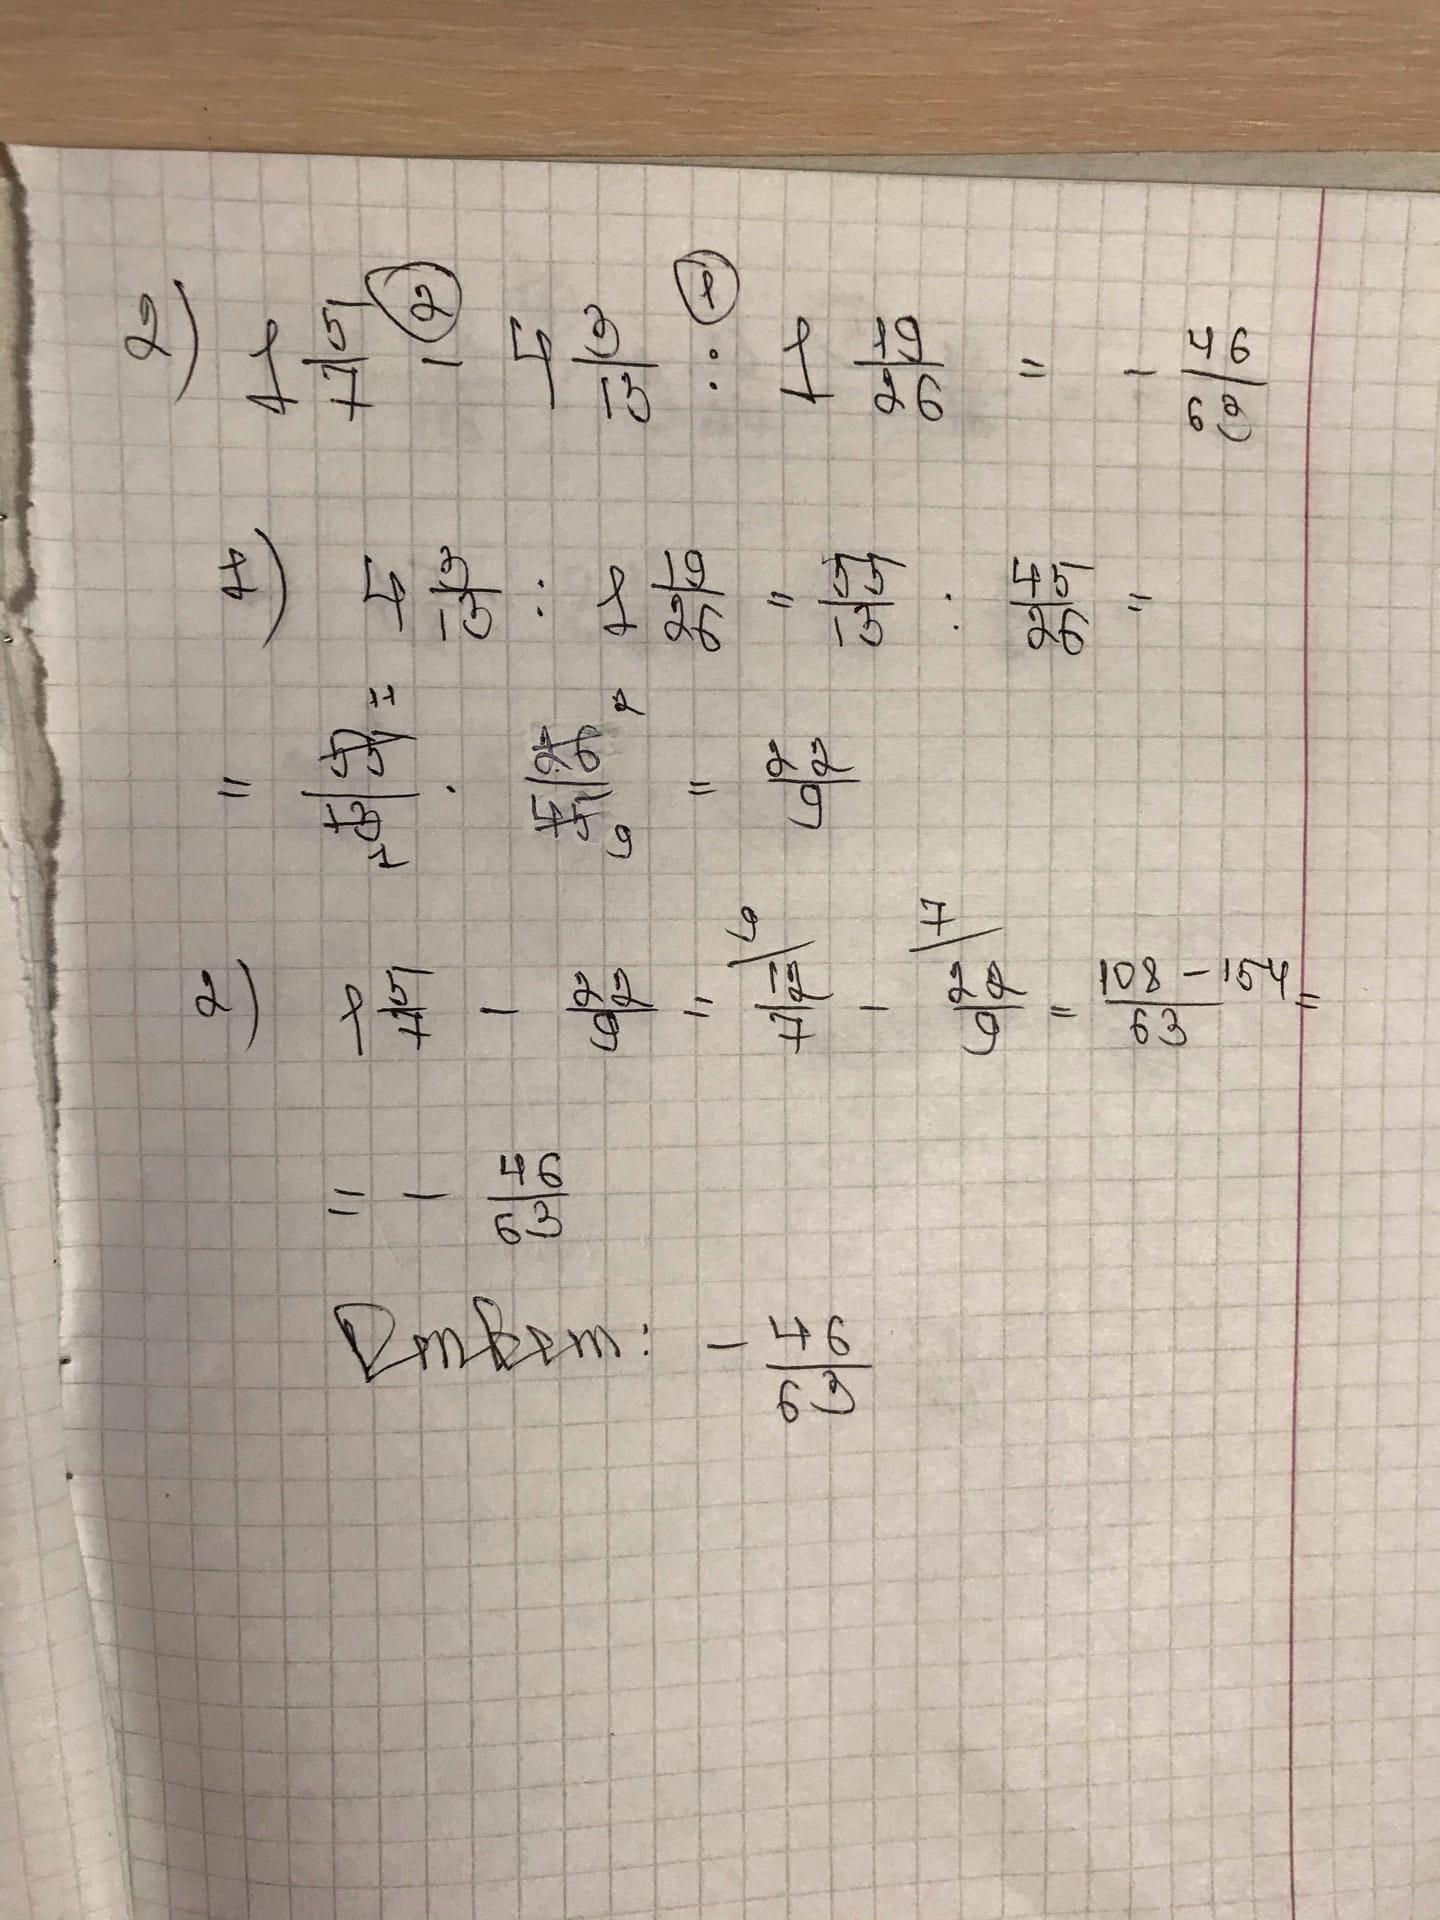 2) 1 5/7 - 4 3/13 : 1 19/26 = - 46/63
② ①
1) 4 3/13 : 1 19/26 = 55/13 : 45/26 =
= 55/13 · 26/45 = 22/9
11 2
1 9
2) 1 5/7 - 22/9 = 12/7 - 22/9 = 108-154/63 =
9 7
= - 46/63
Ответ: - 46/63